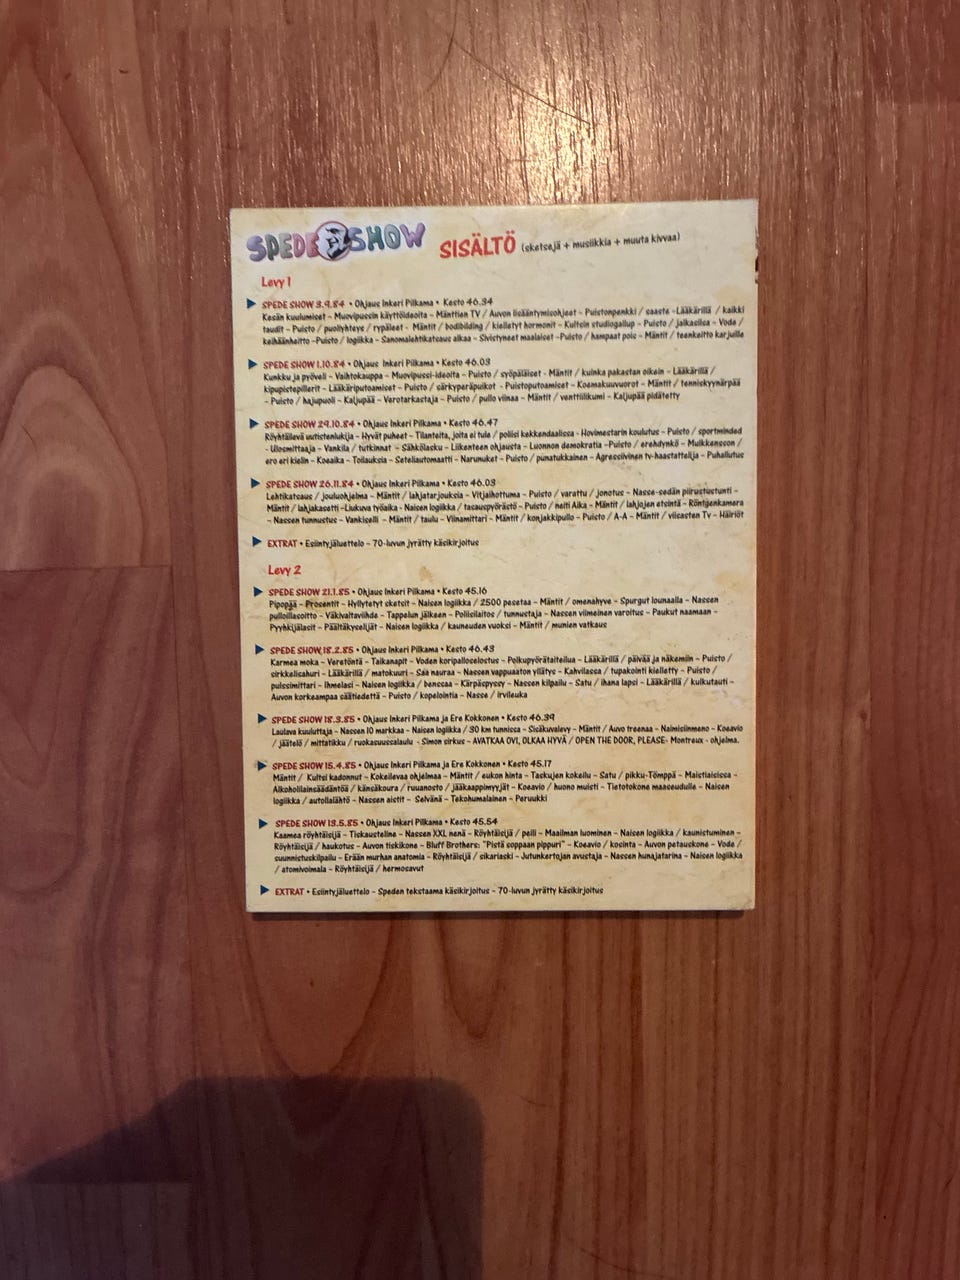 SPEDE SHOW SISÄLTÖ (sketsejä + musiikkia + muuta kivvaa)
Levy 1
SPEDE SHOW 3.9.84 • Ohjaus Inkeri Pilkama • Kesto 46.34
Kesän kuulumiset – Muovipussin käyttöideoita – Mänttien TV / Auvon lisääntymisohjeet – Puistonpenkki / saaste – Lääkärillä / kaikki
taudit – Puisto / puoliyhteys / rypäleet – Mäntit / bodibilding / kielletyt hormonit – Kultsin studiogallup – Puisto / jalkasilsa – Vode /
keihäänheitto – Puisto / logiikka – Sanomalehtikatsaus alkaa – Sivistyneet maalaiset – Puisto / hampaat pois – Mäntit / teenkeitto karjuille
SPEDE SHOW 1.10.84 • Ohjaus Inkeri Pilkama • Kesto 46.03
Kunkku ja pyöveli – Vaihtokauppa – Muovipussi-ideoita – Puisto / syöpäläiset – Mäntit / kuinka pakastan oikein – Lääkärillä /
kipupistepillerit – Lääkäriputoamiset – Puisto / särkyperäpuikot – Puistoputoamiset – Koemakuuvuorot – Mäntit / tenniskyynärpää
– Puisto / hajupuoli – Kaljupää – Verotarkastaja – Puisto / pullo viinaa – Mäntit / venttiilikumi – Kaljupää pidätetty
SPEDE SHOW 29.10.84 • Ohjaus Inkeri Pilkama • Kesto 46.47
Röyhtäilevä uutistenlukija – Hyvät puheet – Tilanteita, joita ei tule / poliisi kekkendaalissa – Hovimestarin koulutus – Puisto / sportminded
– Ulosmittaaja – Vankila / tutkinnat – Sähkölasku – Liikenteen ohjausta – Luonnon demokratia – Puisto / erehdynkö – Mulkkensson /
ero eri kielin – Koeaika – Toilauksia – Seteliautomaatti – Narunuket – Puisto / punatukkainen – Agressiivinen tv-haastattelija – Puhallutus
SPEDE SHOW 26.11.84 • Ohjaus Inkeri Pilkama • Kesto 46.03
Lehtikatsaus / jouluohjelma – Mäntit / lahjatarjouksia – Vitjaihottuma – Puisto / varattu / jonotus – Nasse-sedän piirustustunti –
Mäntit / lahjakasetti – Liukuva työaika – Naisen logiikka / tasauspyörästö – Puisto / neiti Aika – Mäntit / lahjojen etsintä – Röntgenkamera
– Nassen tunnustus – Vankiselli – Mäntit / taulu – Viinamittari – Mäntit / konjakkipullo – Puisto / A-A – Mäntit / viisasten Tv – Häiriöt
EXTRAT • Esiintyjäluettelo – 70-luvun jyrätty käsikirjoitus
Levy 2
SPEDE SHOW 21.1.85 • Ohjaus Inkeri Pilkama • Kesto 45.16
Pipopää – Prosentit – Hyllytetyt sketsit – Naisen logiikka / 2500 pesetaa – Mäntit / omenahyve – Spurgut lounaalla – Nassen
pulloillasoitto – Väkivaltaviihde – Tappelun jälkeen – Poliisilaitos / tunnustaja – Nassen viimeinen varoitus – Paukut naamaan –
Pyyhkijälasit – Päältäkyselijät – Naisen logiikka / kauneuden vuoksi – Mäntit / munien vatkaus
SPEDE SHOW 18.2.85 • Ohjaus Inkeri Pilkama • Kesto 46.43
Karmea moka – Veretöntä – Taikanapit – Voden koripalloselostus – Polkupyörätaiteilua – Lääkärillä / päivää ja näkemiin – Puisto /
sirkkelisahuri – Lääkärillä / matokuuri – Saa nauraa – Nassen vappuaaton yllätys – Kahvilassa / tupakointi kielletty – Puisto /
puissimittari – Ihmelasi – Naisen logiikka / benssaa – Kärpäspyssy – Nassen kilpailu – Satu / ihana lapsi – Lääkärillä / kulkutauti –
Auvon korkeampaa säätiedettä – Puisto / kopelointia – Nasse / irvileuka
SPEDE SHOW 18.3.85 • Ohjaus Inkeri Pilkama ja Ere Kokkonen • Kesto 46.39
Laulava kuuluttaja – Nassen 10 markkaa – Naisen logiikka / 30 km tunnissa – Sisäkuvalevy – Mäntit / Auvo treenaa – Naimisiinmeno – Koeavio
/ jäätelö / mittatikku / ruokasuussalaulu – Simon sirkus – AVATKAA OVI, OLKAA HYVÄ / OPEN THE DOOR, PLEASE- Montreux - ohjelma.
SPEDE SHOW 15.4.85 • Ohjaus Inkeri Pilkama ja Ere Kokkonen • Kesto 45.17
Mäntit / Kultsi kadonnut – Kokeilevaa ohjelmaa – Mäntit / eukon hinta – Taskujen kokeilu – Satu / pikku-Tömppä – Maistiaisissa –
Alkoholilainsäädäntöä / känsäkoura / ruuanosto / jääkaappimyyjät – Koeavio / huono muisti – Tietotokone maaseudulle – Naisen
logiikka / autollalähtö – Nassen aistit – Selvänä – Tekohumalainen – Peruukki
SPEDE SHOW 13.5.85 • Ohjaus Inkeri Pilkama ja Ere Kokkonen • Kesto 45.54
Kaamea röyhtäisijä – Tiskausteline – Nassen XXL nenä – Röyhtäisijä / peili – Maailman luominen – Naisen logiikka / kaunistuminen –
Röyhtäisijä / haukotus – Auvon tiskikone – Bluff Brothers: "Pistä soppaan pippuri" – Koeavio / kosinta – Auvon petauskone – Vode /
suunnistuskilpailu – Erään murhan anatomia – Röyhtäisijä / sikariaski – Jutunkertojan avustaja – Nassen hunajatarina – Naisen logiikka
/ atomivoimala – Röyhtäisijä / hermosavut
EXTRAT • Esiintyjäluettelo – Speden tekstaama käsikirjoitus – 70-luvun jyrätty käsikirjoitus